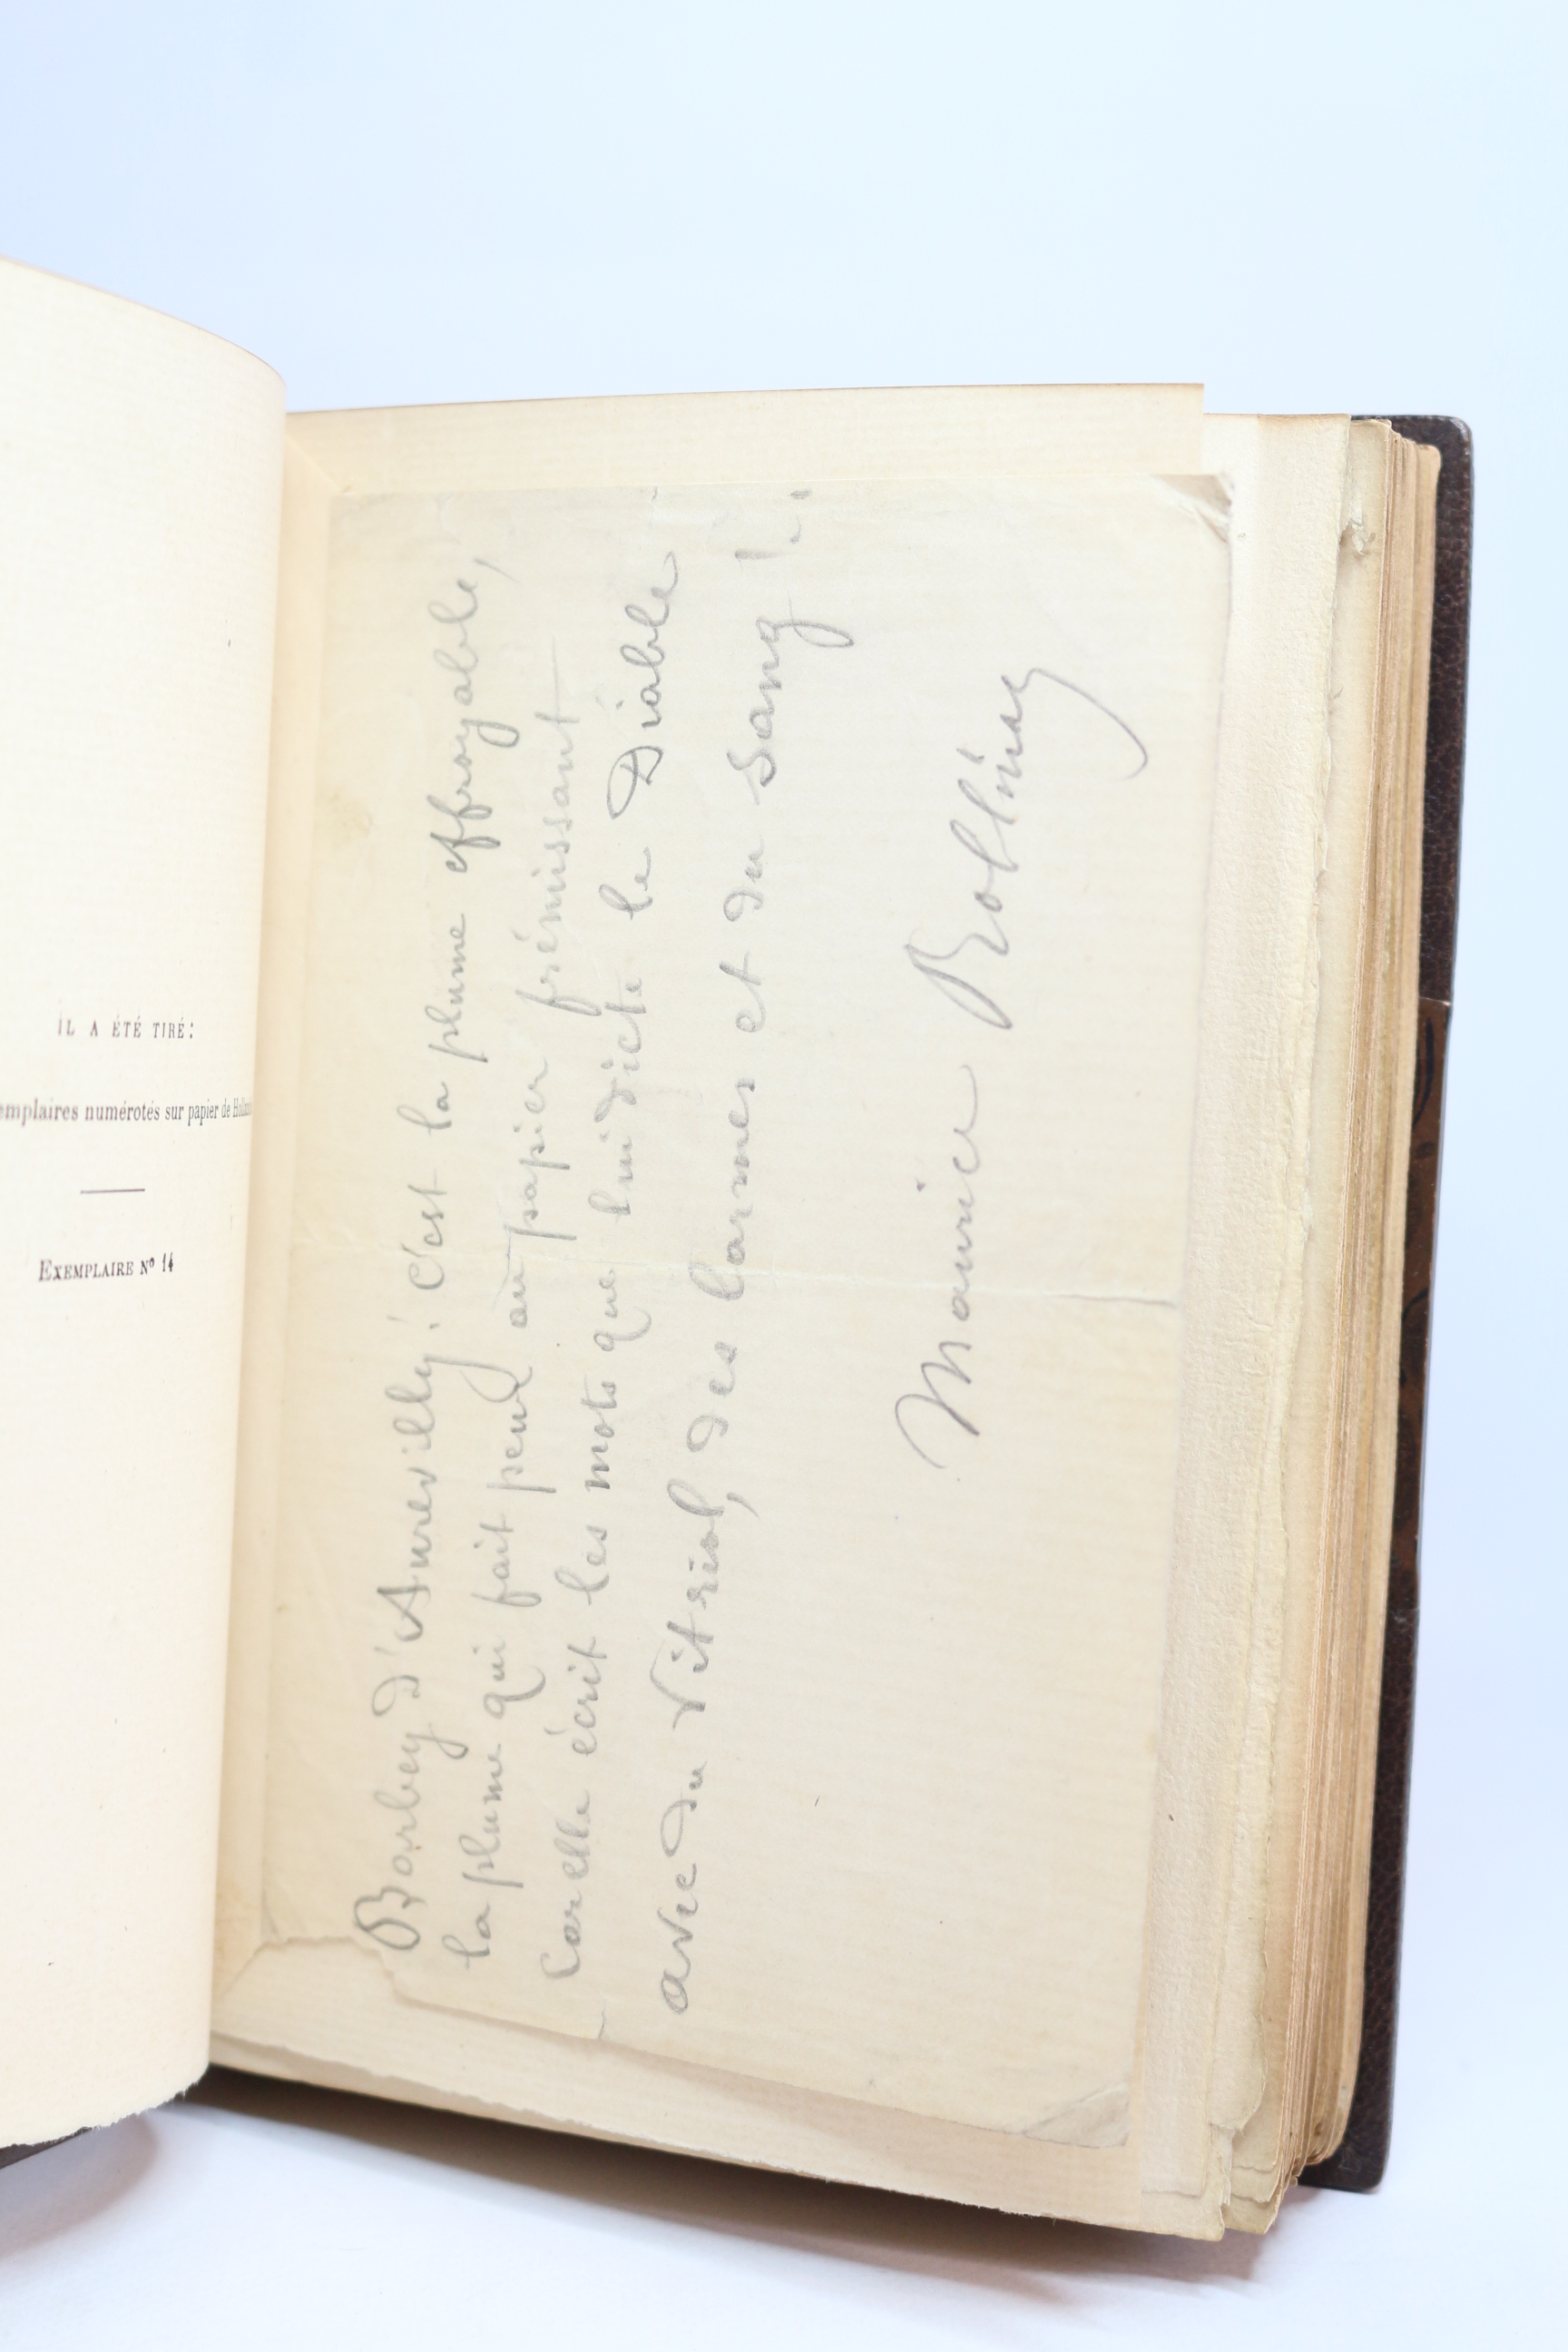 IL A ÉTÉ TIRÉ:
emplaires numérotés sur papier de Hollan
EXEMPLAIRE Nº 14
Barbey d'Aurevilly! C'est la plume effroyable,
la plume qui fait peur au papier frémissant
Car elle écrit les mots que lui dicte le Diable
avec du Vitriol, des larmes et du sang!.
Maurice Rollinat